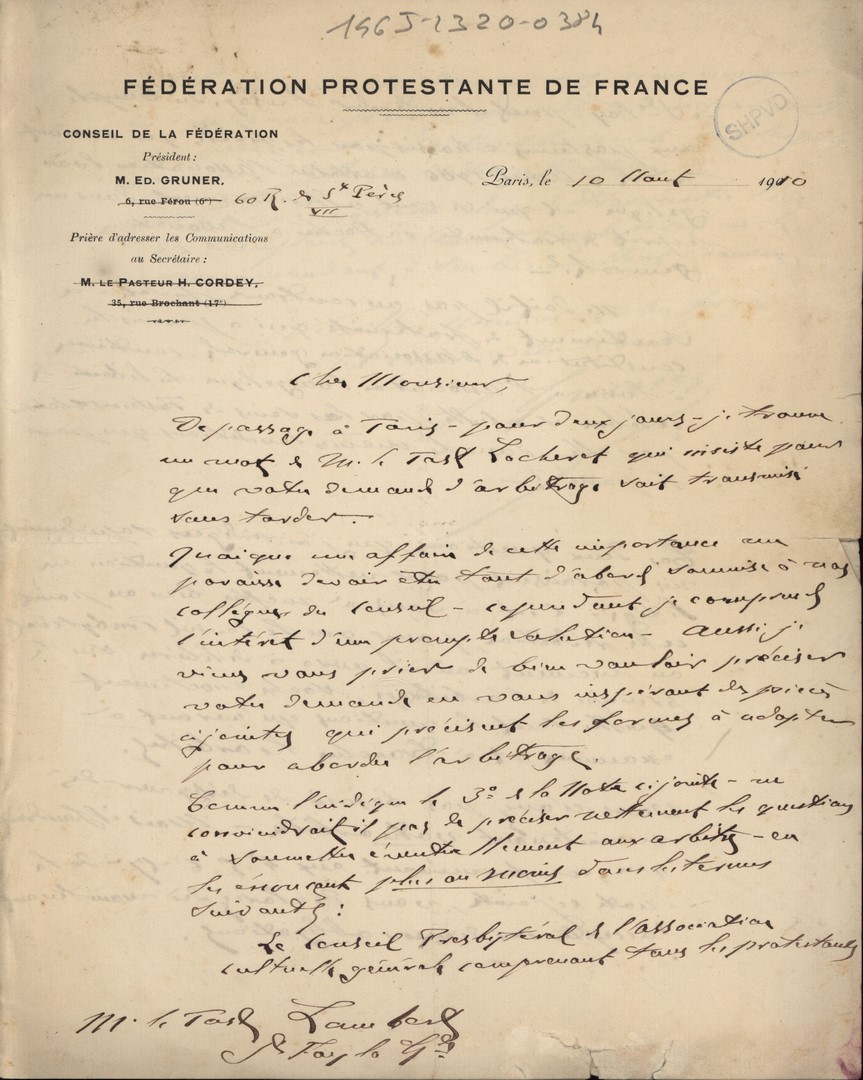 196J-1320-0384
FÉDÉRATION PROTESTANTE DE FRANCE
SHPVD
CONSEIL DE LA FÉDÉRATION
Président :
M. ED. GRUNER,
6, rue Férou (6e) 60 R. des Sts Pères
VII
Paris, le 10 Aout 1910
Prière d'adresser les Communications
au Secrétaire :
M. LE PASTEUR H. CORDEY,
35, rue Brochant (17e)
Cher Monsieur,
De passage à Paris - pour deux jours - je trouve
un mot de M. le Past Lacheret qui insiste pour
que votre demande d'arbitrage soit transmise
sans tarder.
Quoique une affaire de cette importance me
paraisse devoir être tout d'abord soumise à nos
collègues du Conseil - cependant je comprends
l'intérêt d'une prompte solution - aussi je
viens vous prier de bien vouloir préciser
votre demande en vous inspirant des pièces
cijointes qui précisent les formes à adopter
pour aborder l'arbitrage.
Comme l'indique le 3° de la Note cijointe - ne
conviendrait il pas de préciser nettement les questions
à soumettre éventuellement aux arbitres - en
les énonçant plus ou moins dans les termes
suivants :
Le Conseil Presbytéral de l'association
cultuelle générale comprenant tous les protestants
M. le Past Lambert
Ste Foy la Gde